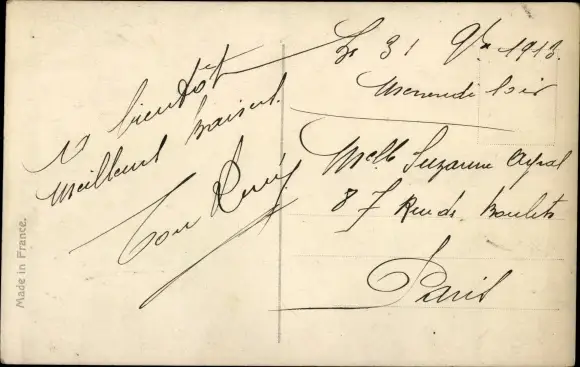 A bientôt
Meilleurs baisers.
Ton René
Le 31 Xbre 1913.
Mercredi soir
Melle Suzanne Ayral
87 Rue des Boulets
Paris
Made in France.